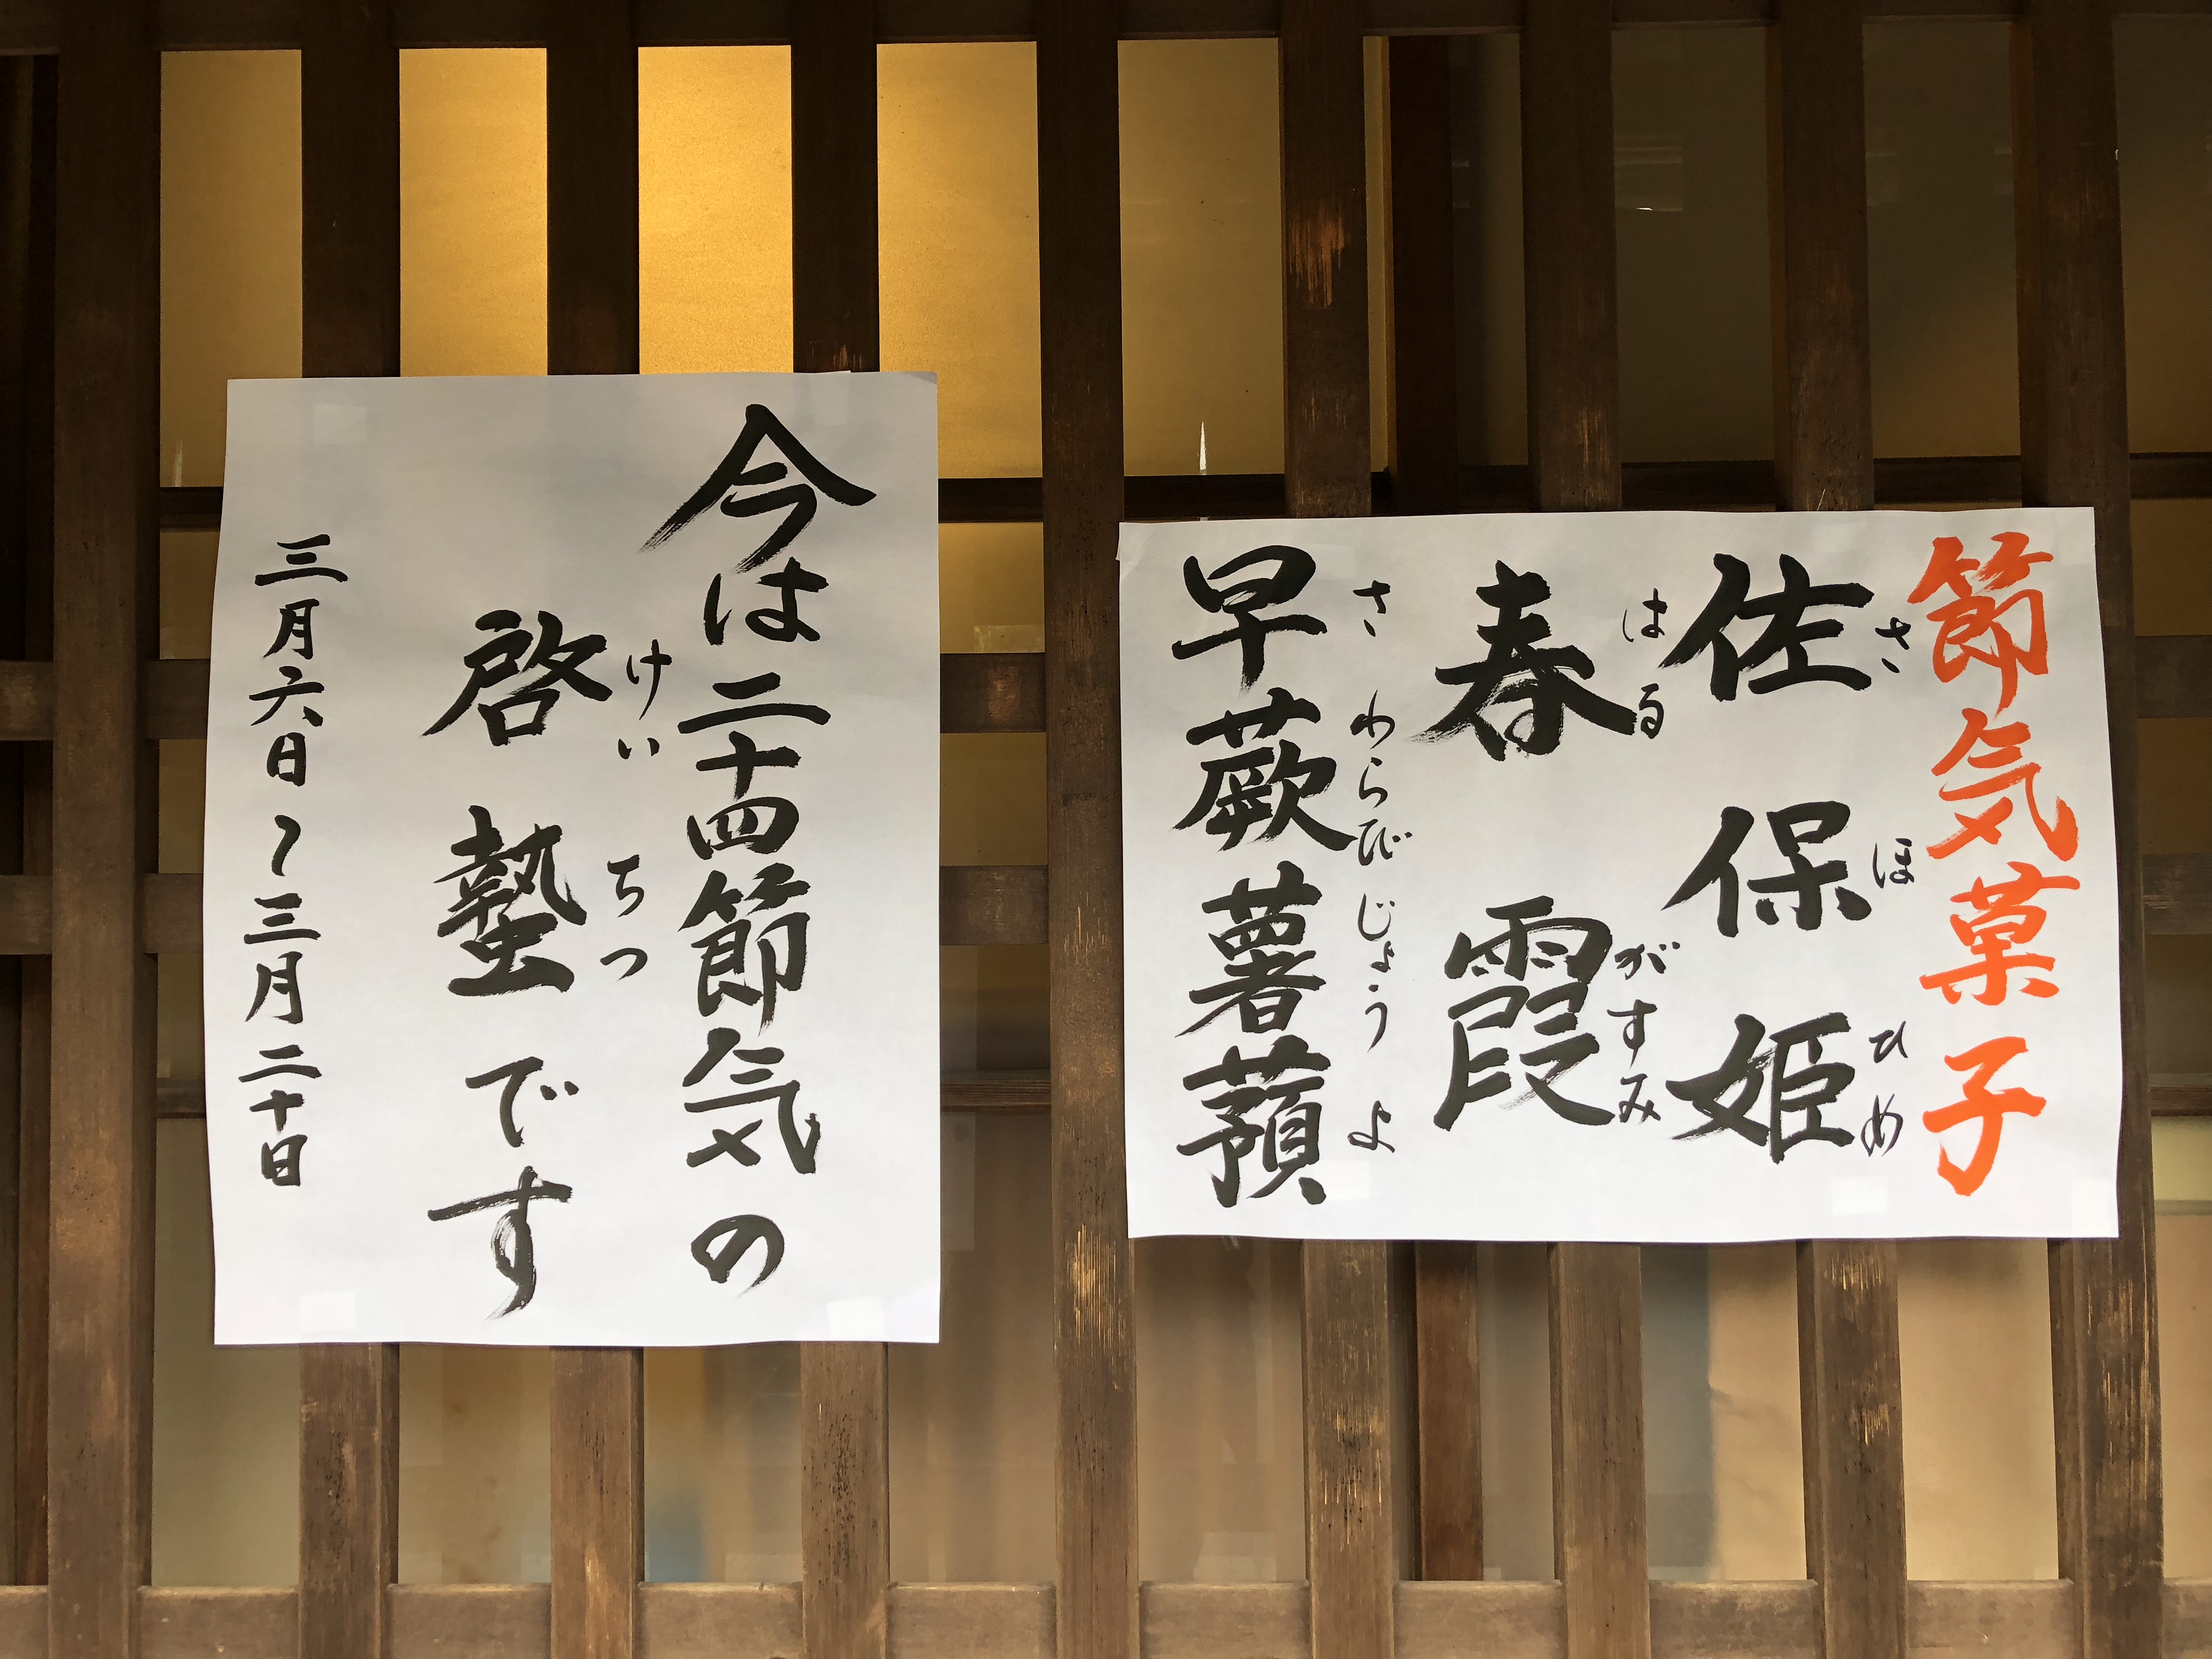 節気菓子
佐保姫
さほひめ
春霞
はるがすみ
早蕨薯蕷
さわらびじょうよ
今は二十四節気の
啓蟄です
けいちつ
三月六日〜三月二十日